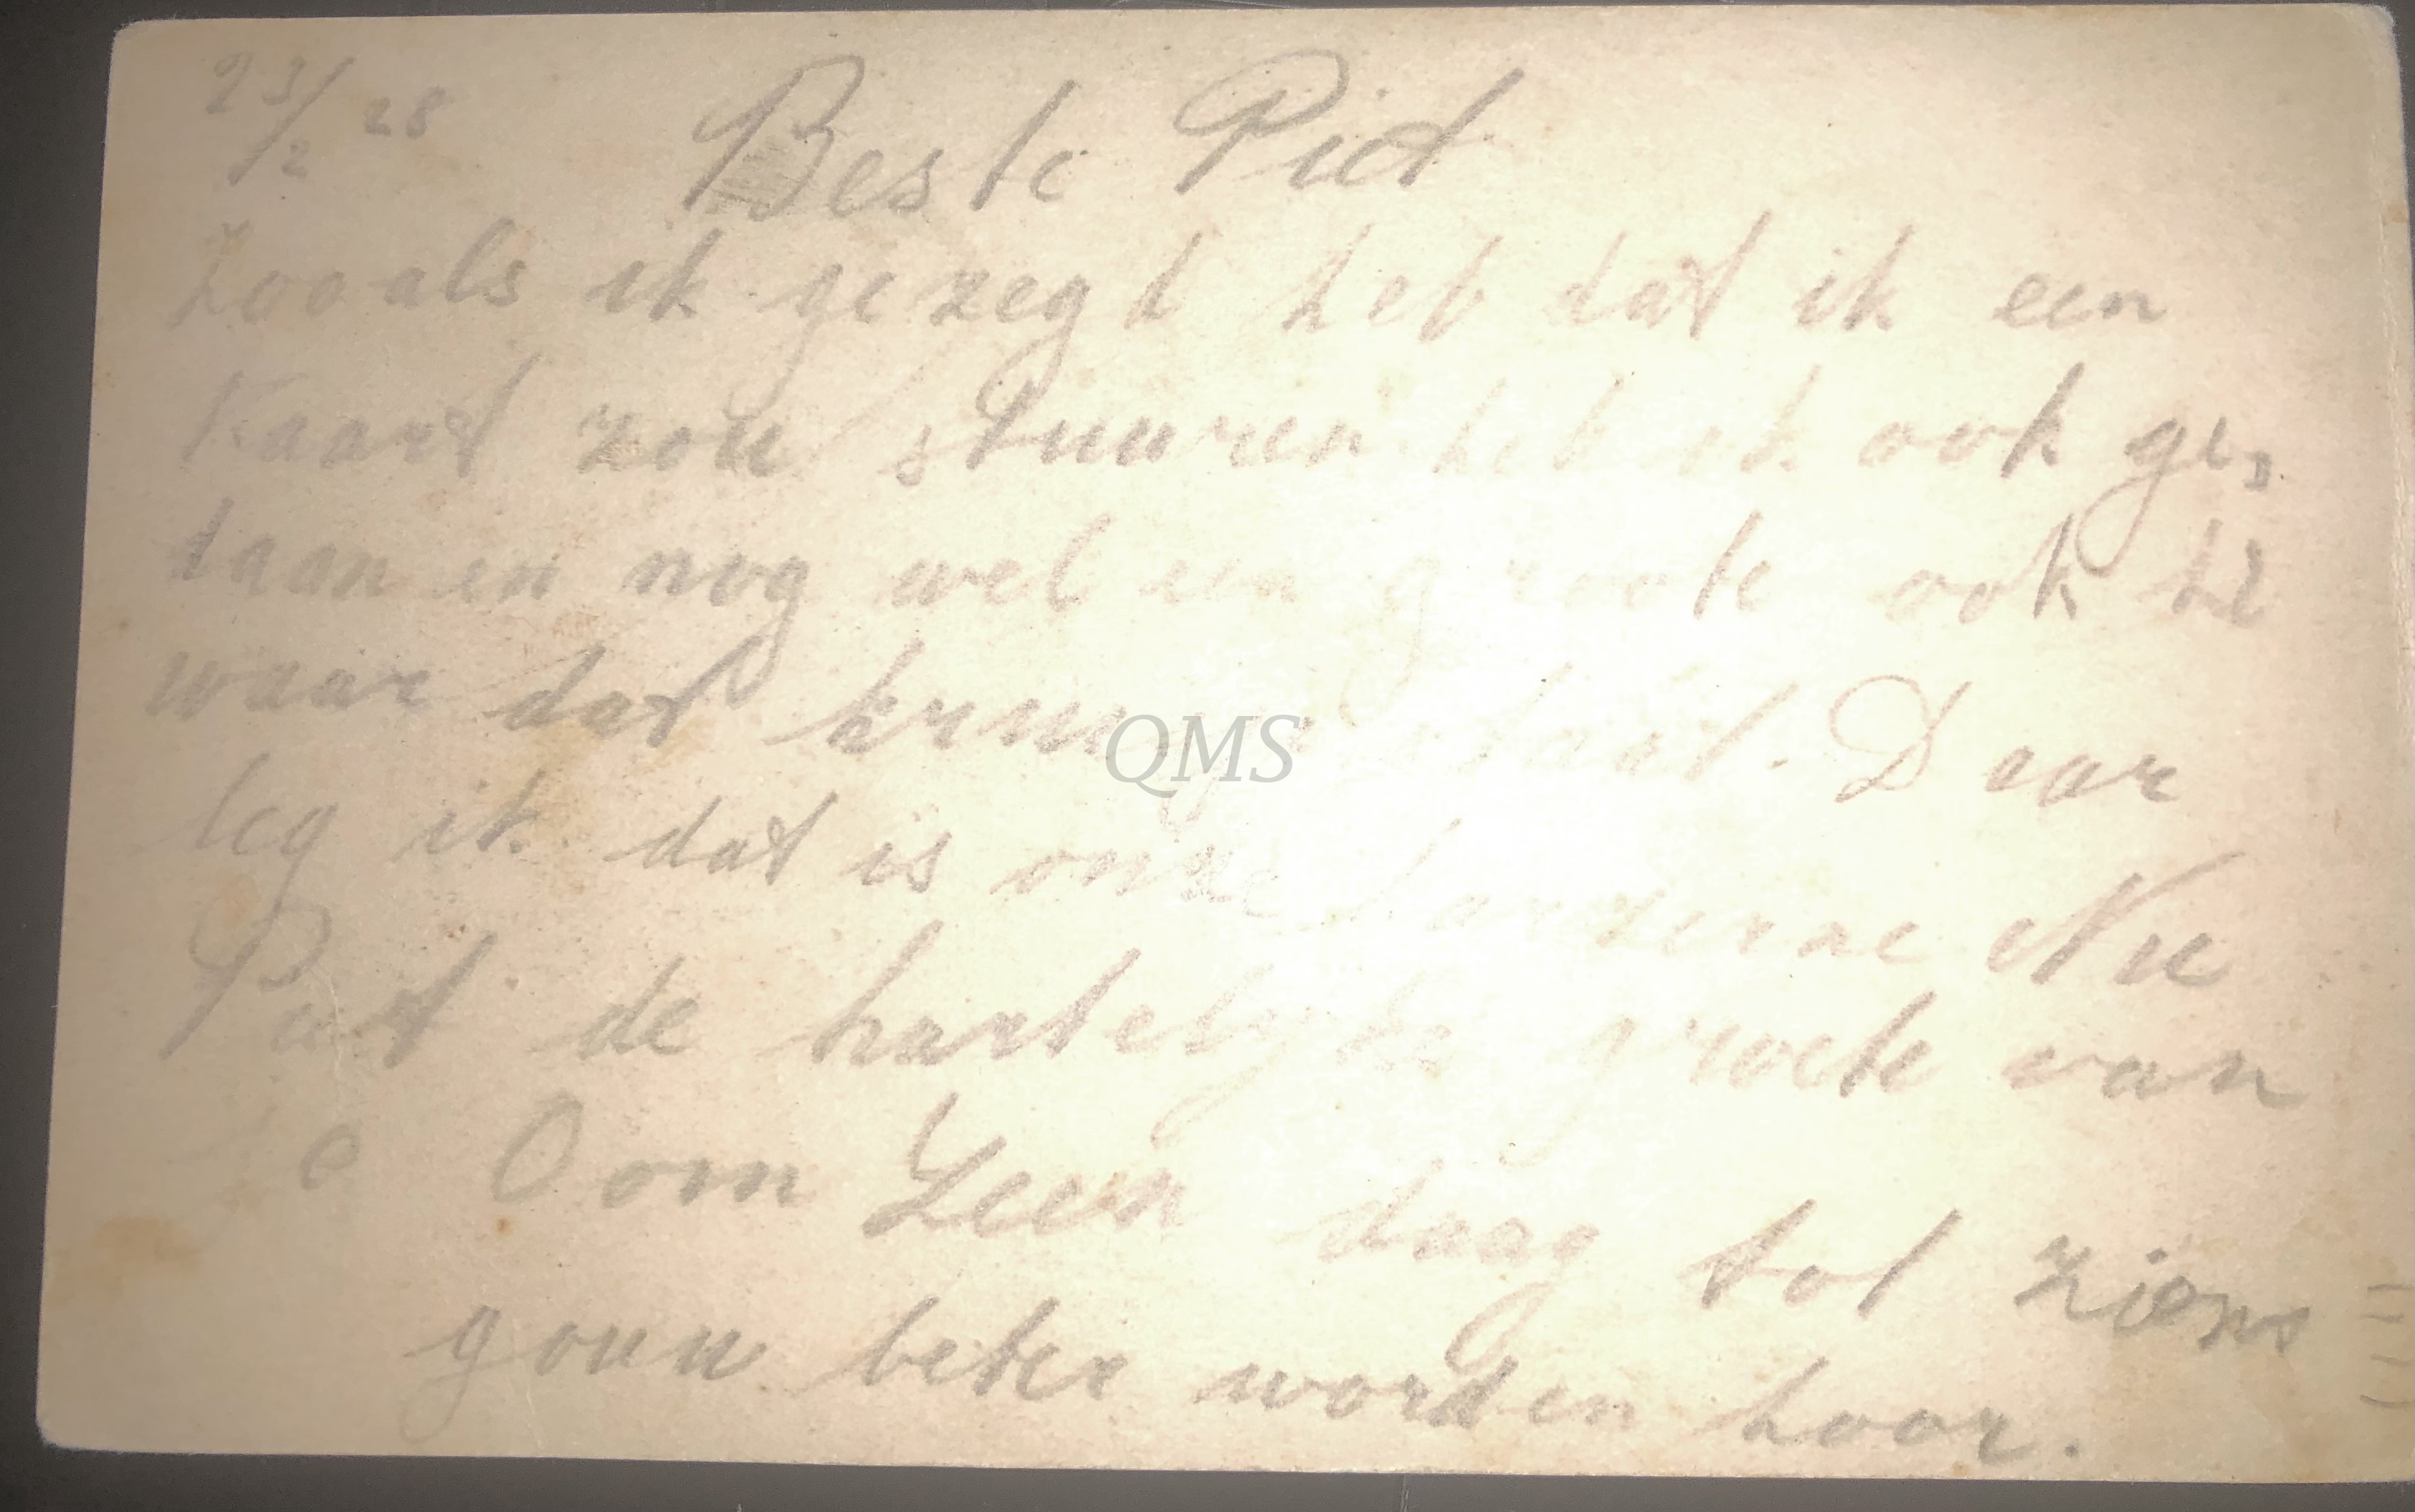 23/2 28
Beste Piet
Zooals ik gezegd heb dat ik een
Kaart zou stuuren heb ik ook ge,
daan en nog wel een groote ook
waar dat staat. Daar
leg ik dat is onze Nu
Piet de hartelyke groete van
Oom Leen daag tot ziens
gouw beter worden hoor.
QMS